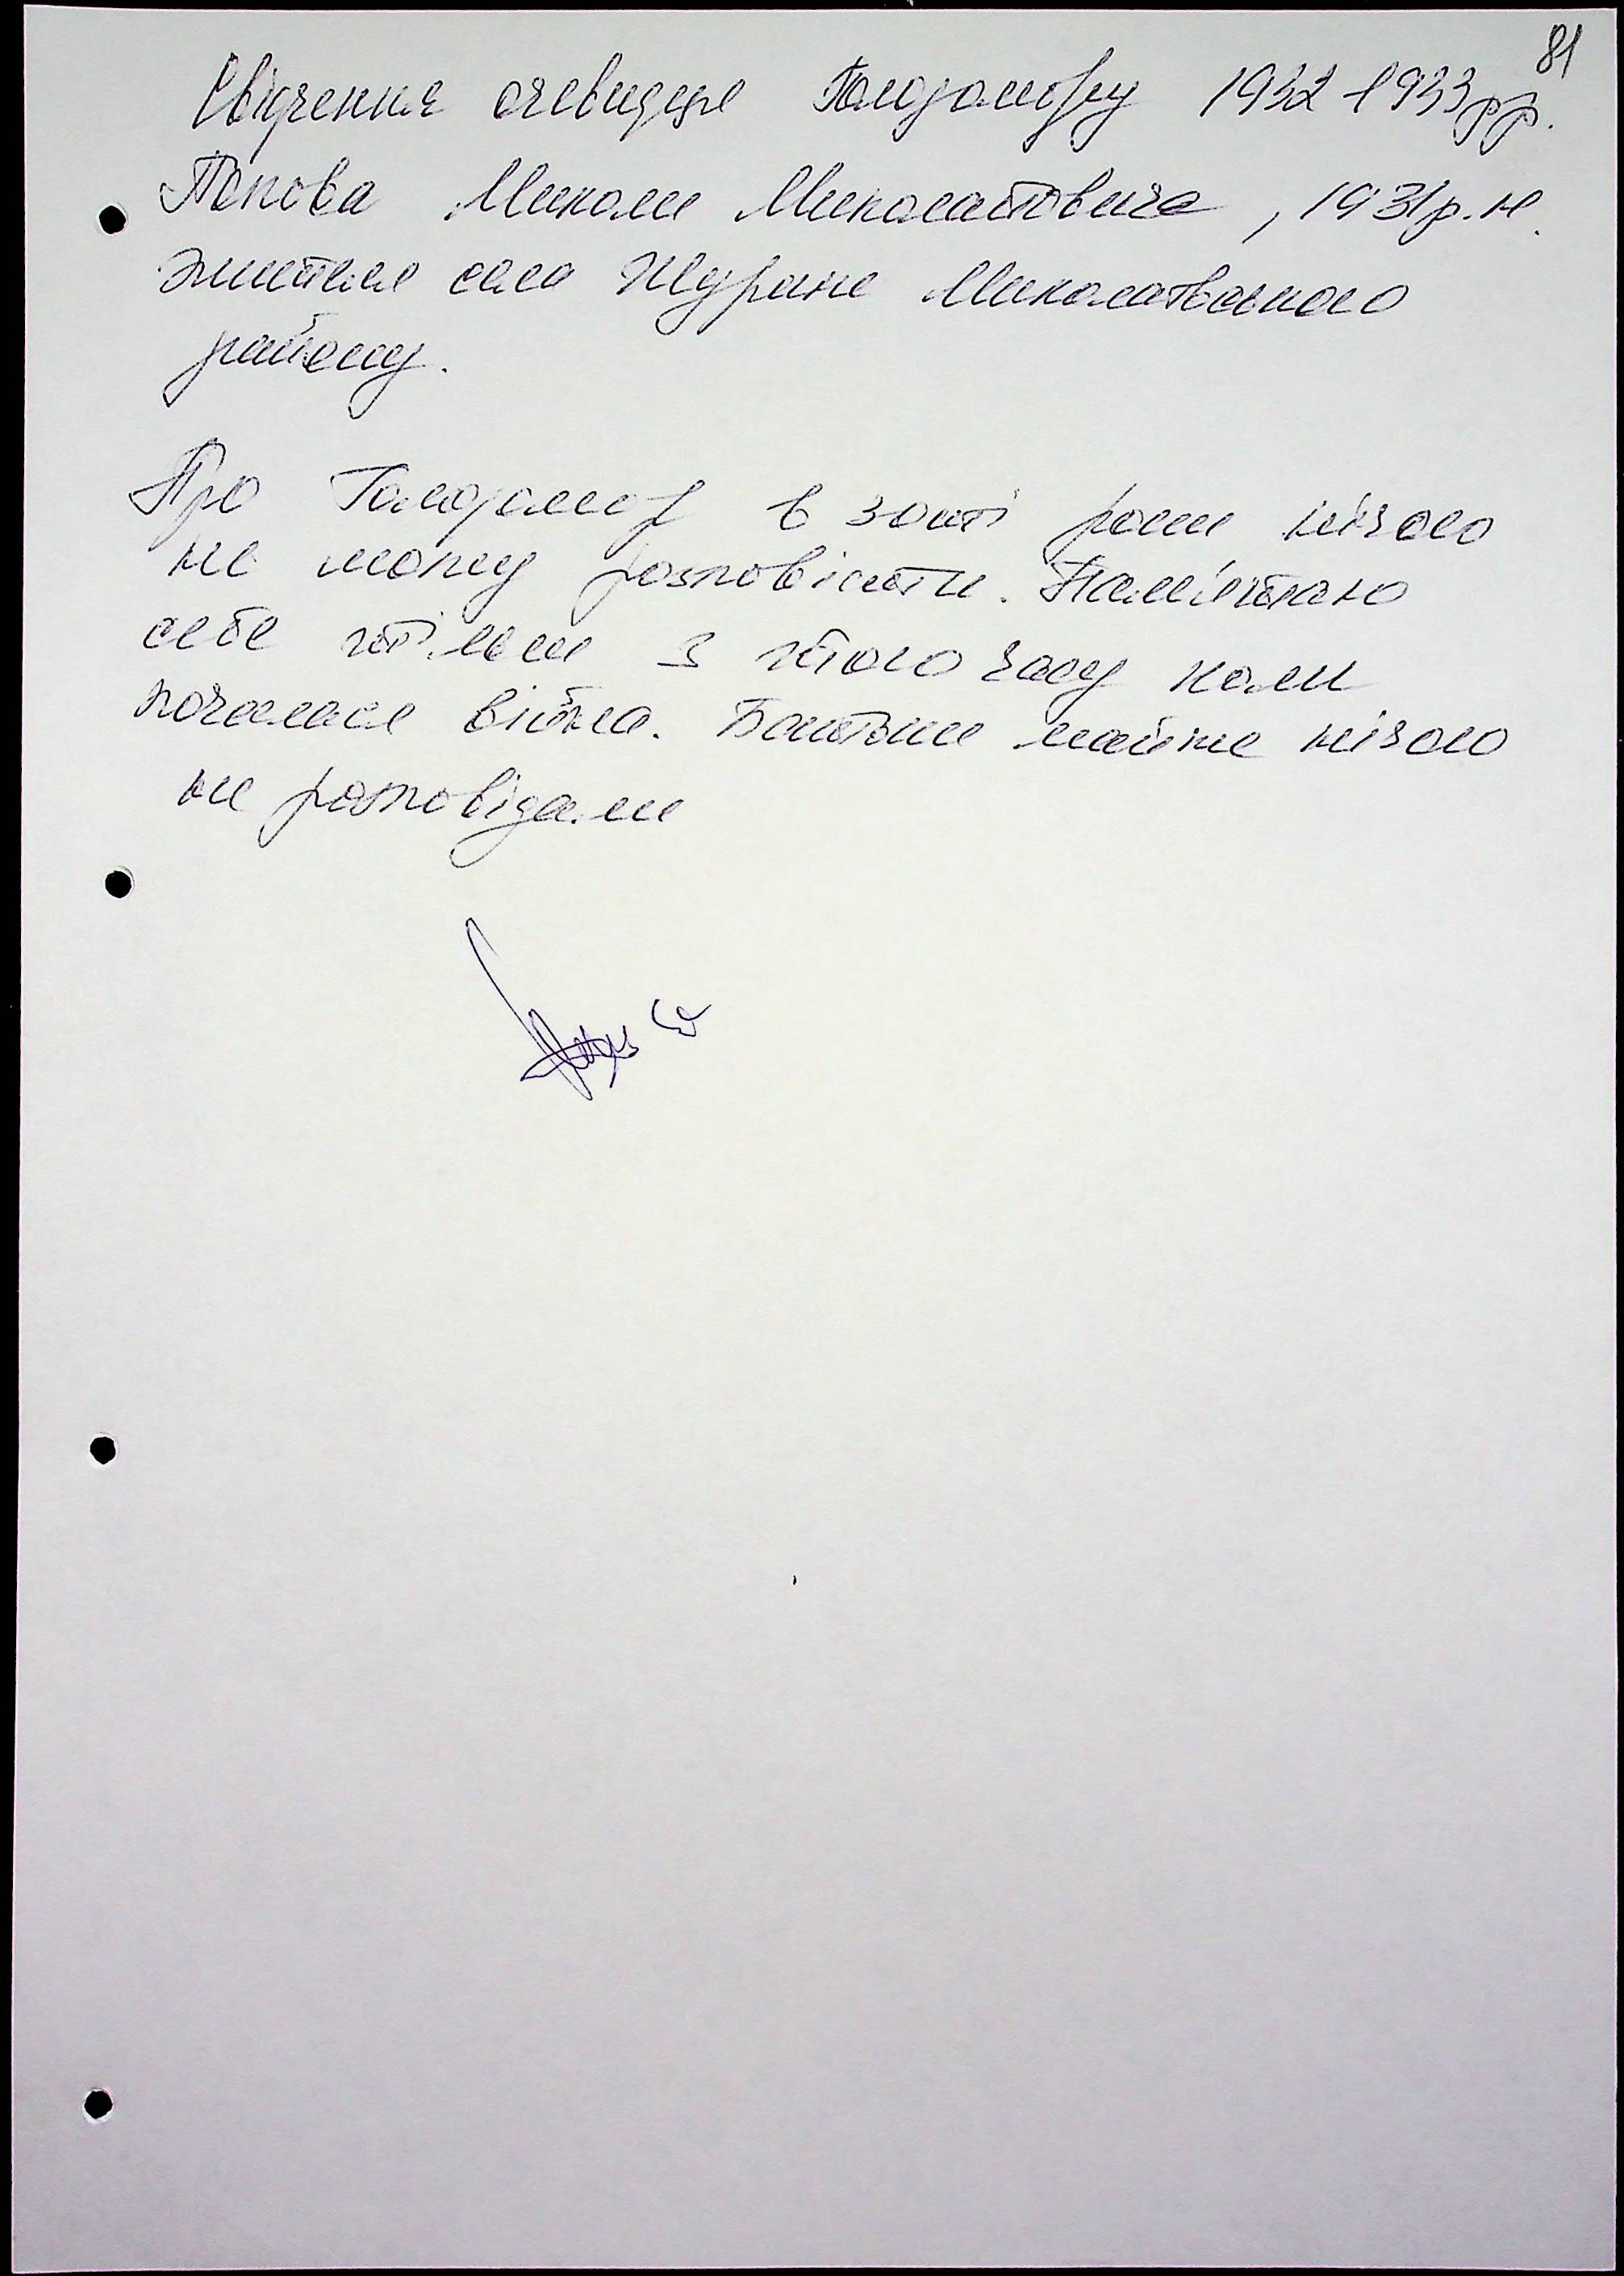 81
Свідчення очевидця Голодомору 1932-1933 рр.
Попова Миколи Миколайовича, 1931 р.н.
жителя села Миколаївського
району.
Про Голодомор в 30ті роки нічого
не можу розповісти. Пам'ятаю
себе тільки з того часу коли
почалася війна. Батьки майже нічого
не розповідали